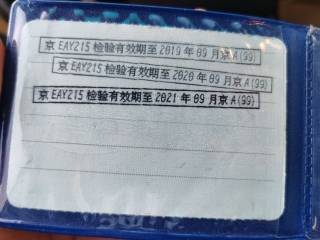 京 EAY215 检验有效期至 2019 年 09 月京 A(99)
京 EAY215 检验有效期至 2020 年 09 月京 A(99)
京 EAY215 检验有效期至 2021 年 09 月京 A(99)